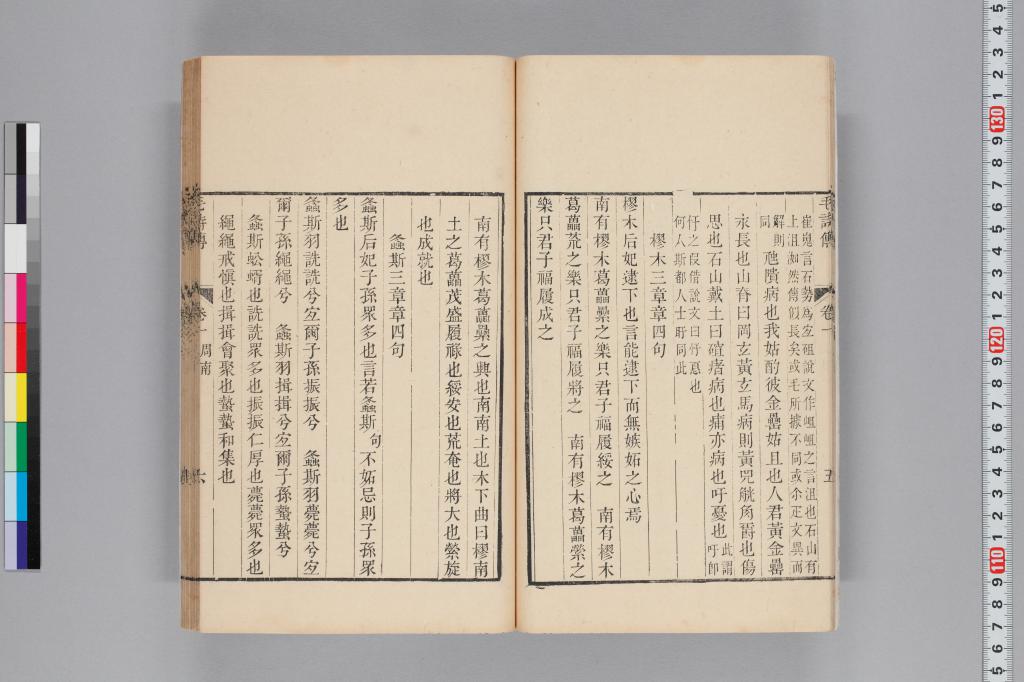 崔嵬言石㔟爲㝐砠說文作岨岨之言沮也石山有
上沮洳然傳叚長矣或毛所據不同或尒疋文異而
解則
同
虺隤病也我姑酌彼金罍姑且也人君黃金罍
永長也山脊曰岡玄黃玄馬病則黃兕觥角爵也傷
思也石山戴土曰砠瘏病也痡亦病也吁憂也
此謂
吁卽
忓之叚借說文曰忓𢝊也
何人斯都人士盱同此
樛木三章章四句
樛木后妃逮下也言能逮下而無嫉妬之心焉
南有樛木葛藟纍之樂只君子福履綏之 南有樛木
葛藟荒之樂只君子福履將之 南有樛木葛藟縈之
樂只君子福履成之
南有樛木葛藟纍之興也南南土也木下曲曰樛南
土之葛藟茂盛履祿也綏安也荒奄也將大也縈旋
也成就也
螽斯三章章四句
螽斯后妃子孫眾多也言若螽斯句不妬忌則子孫眾
多也
螽斯羽詵詵兮㝐爾子孫振振兮 螽斯羽薨薨兮㝐
爾子孫繩繩兮 螽斯羽揖揖兮㝐爾子孫蟄蟄兮
螽斯蚣蝑也詵詵眾多也振振仁厚也薨薨眾多也
繩繩戒愼也揖揖會聚也蟄蟄和集也
卷一 周南
六
卷一
五